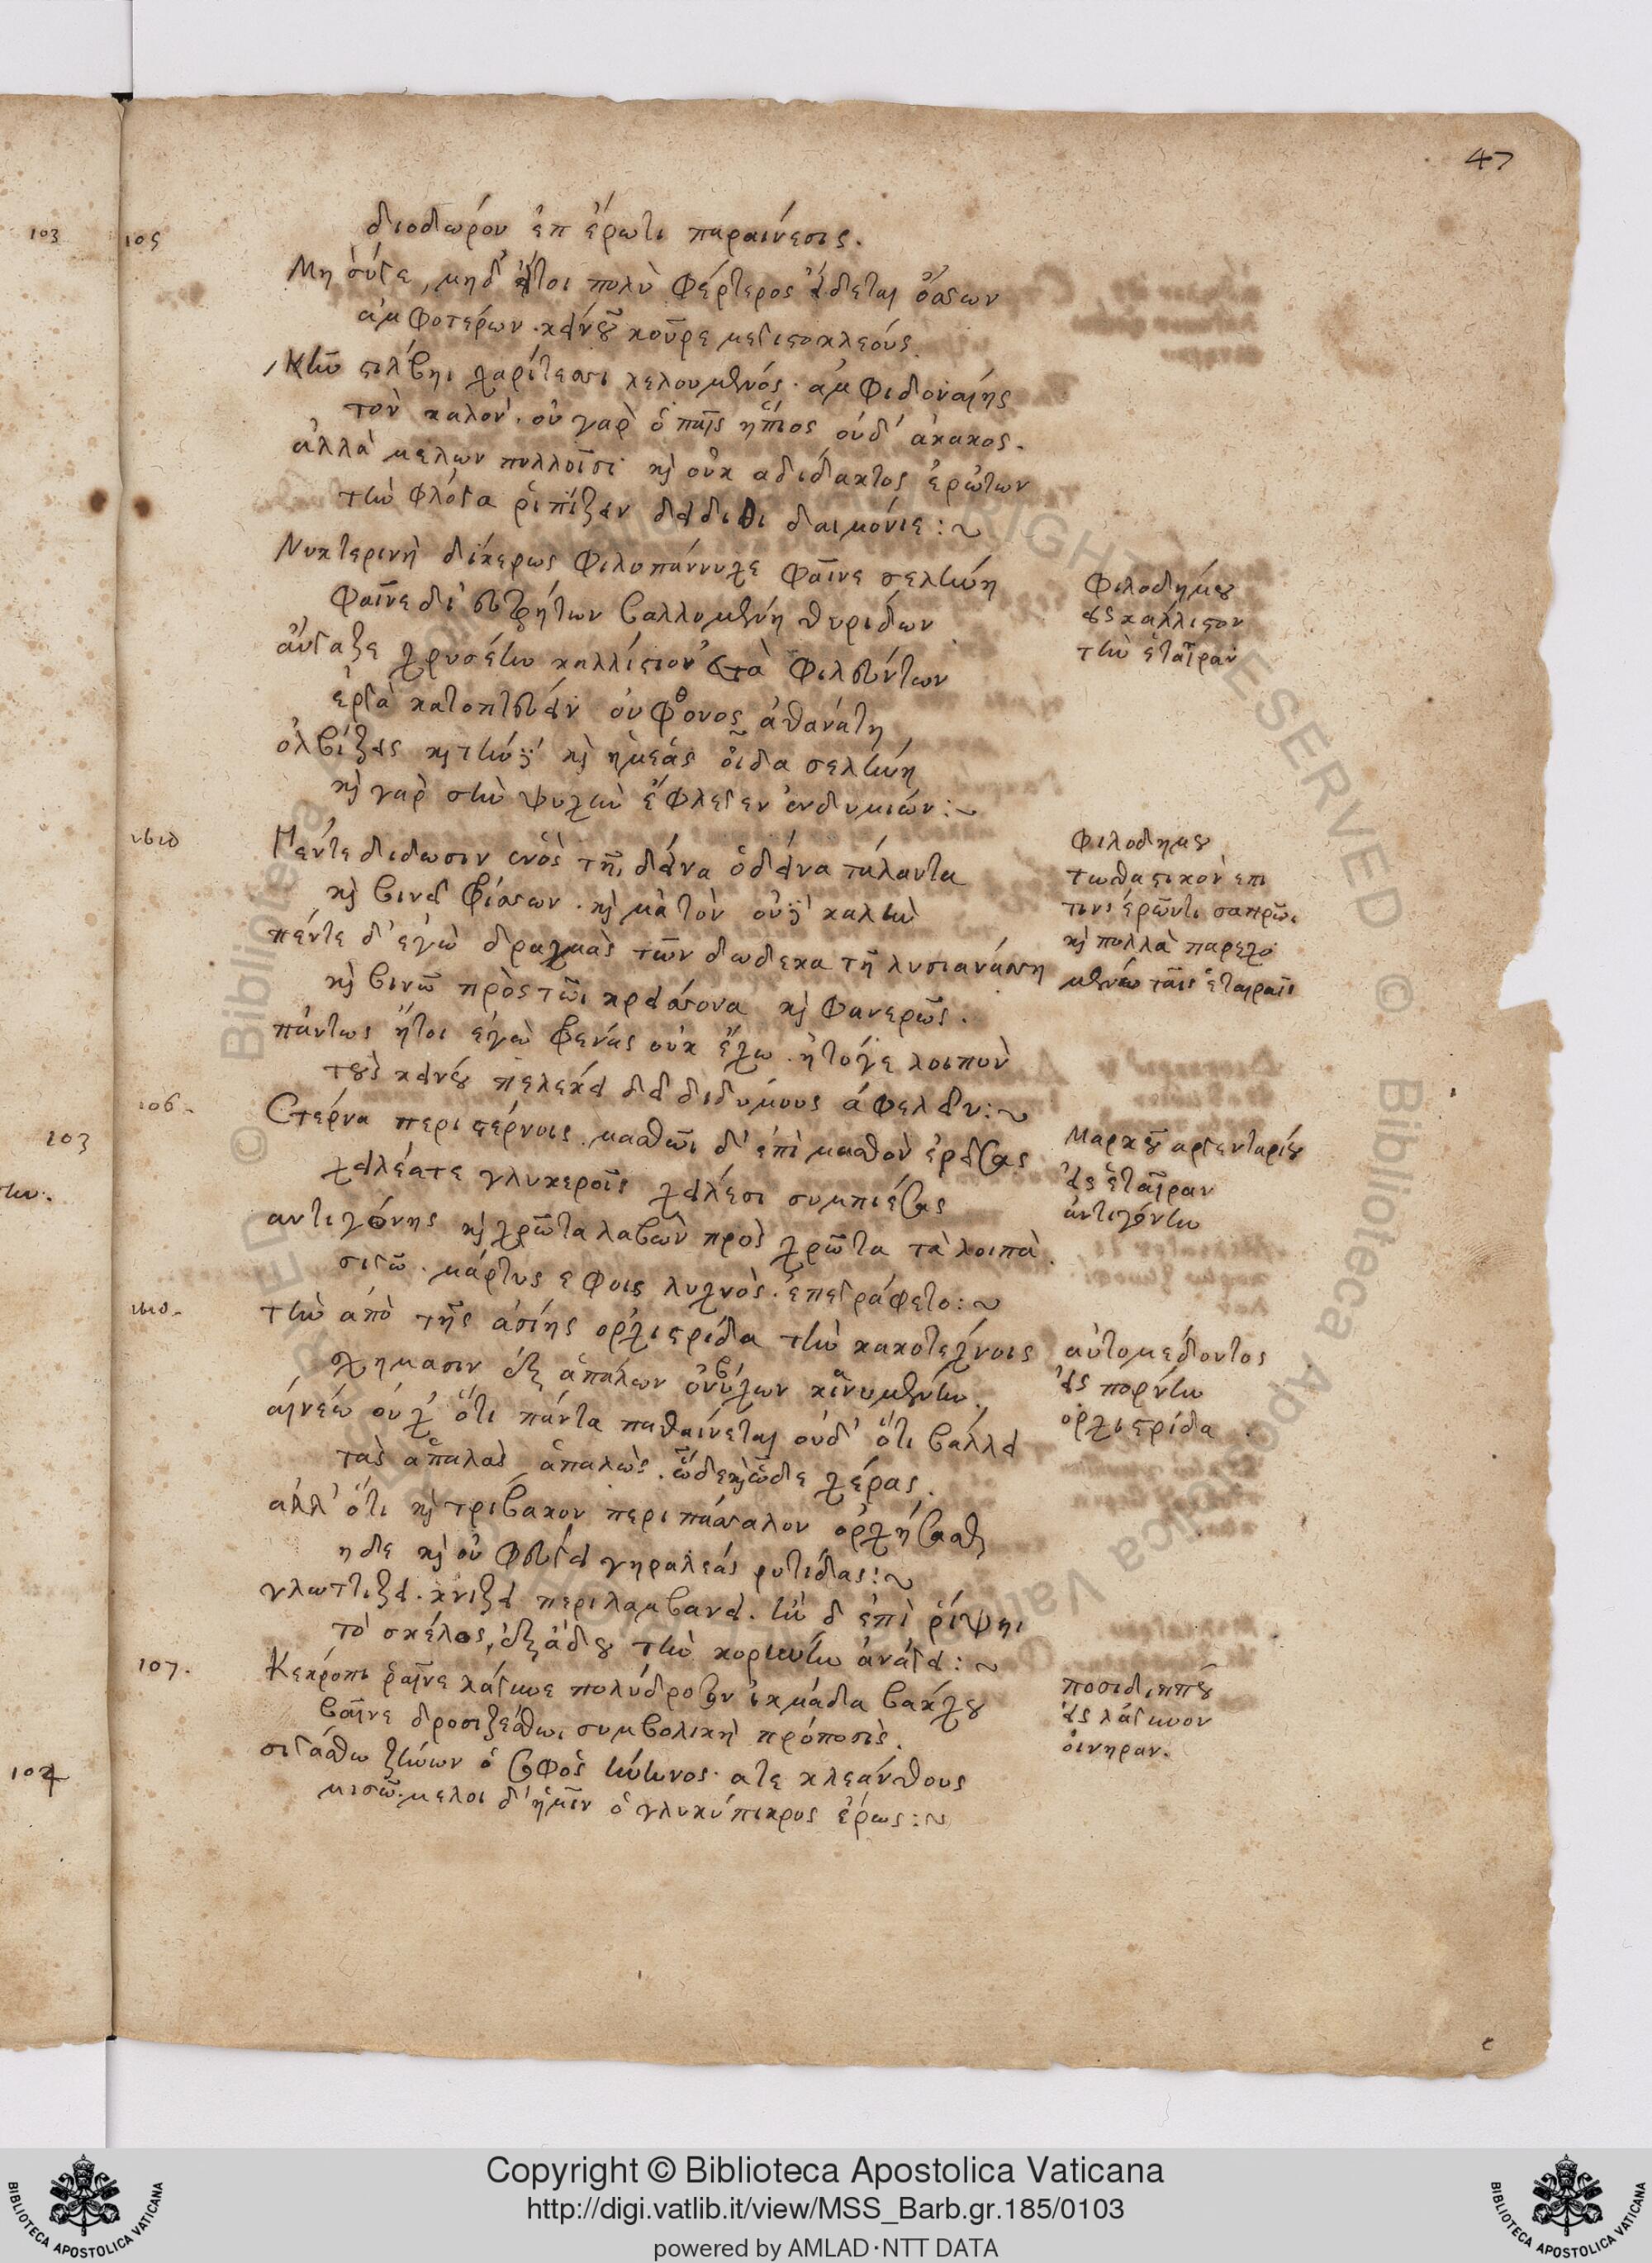 47
103
105
διοδωρόν ἐπ ἐρωτι παραινεσις.
Μη σύγε, μηδ' ἤτοι πολὺ φέρτερος εἴδεται ὄσσων
ἀμφοτερων. κείνου κοῦρε μεγιστοκλεόυς
κἢν στίλβηι χαρίτεσσι λελουμένος. ἀμφιδονοίης
τὸν καλον. οὐ γαρ ὁ παῖς ἤπιος οὐδ' ἀκακος.
ἀλλὰ μέλων πολλοῖσι καὶ οὐκ αδιδακτος ἐρώτων
τὴν φλόγα ῥιπίζειν δείδιθι δαιμόνιε:~
Νυκτερινὴ δίκερως φιλοπάννυχε φαῖνε σελήνη
φαῖνε δι' εὐτρήτων βαλλομένη θυρίδων
αὔγαζε χρυσέην καλλίστιον ἐς τὰ φιλεύντων
ἐργα κατοπτεύειν οὐ φθόνος ἀθανάτη
ὀλβίζεις καὶ τήνδε καὶ ἡμέας οἶδα σελήνη
καὶ γαρ σὴν ψυχὴν ἔφλεγεν ἐνδυμιών:~
Φιλοδήμου
εἰς καλλιστον
τὴν ἑταῖραν
Πέντε διδωσιν ἑνὸς τῆι δεῖνα ὁ δεῖνα τάλαντα
καὶ βινεῖ φρίσσων. καὶ μὰ τὸν οὐδὲ καλήν
πέντε δ' ἐγὼ δραχμὰς τῶν δωδεκα τῆ λυσιανάσση
καὶ βινῶ πρὸς τῶι κρείσσονα καὶ φανερῶς.
πάντως ἤτοι ἐγὼ φρενας οὐκ ἔχω. ἢ τόγε λοιπὸν
τοὺς κείνου πελέκει δεῖ διδύμους ἀφελεῖν:~
Φιλοδημου
τωθαστικὸν επι
τινι ἐρῶντι σαπρῶς
καὶ πολλὰ παρεχο
μένω ταῖς ἑταίραις
106.
103
Στέρνα περι στέρνοις. μασθῶι δ' ἐπὶ μασθὸν ἐρείσας
χείλεά τε γλυκεροῖς χείλεσι συμπιέσας
αντιγόνης καὶ χρῶτα λαβὼν προς χρῶτα τὰ λοιπὰ.
σιγῶ. μάρτυς ἐφ οἷς λυχνὸς. ἐπεγράφετο:~
Μαρκου αργενταρίου
εἰς ἑταῖραν
ἀντιγόνην
τὴν ἀπὸ τῆς ἀσίης ορχιστρίδα τὴν κακοτέχνοις
σχημασιν ἐξ ἁπαλων ὀνύχων κινυμένην
αἰνέω οὐχ' ὅτι πάντα παθαίνεται οὐδ' ὅτι βαλλει
τὰς ἁπαλὰς ἁπαλῶς. ὧδε καὶ ὧδε χέρας.
ἀλλ' ὅτι καὶ τρίβακον περι πάσσαλον ὀρχήσασθαι
ηδε καὶ οὐ φεύγει γηραλέας ρυτίδας:~
γλωττιζει. κνιζει περιλαμβανει. ἢν δ ἐπὶ ῥίψηι
τὸ σκέλος, ἐξ ἅδου τὴν κορύνην ἀνάγει:~
αὐτομεδοντος
εἰς πορνην
ορχιστρίδα.
107.
104
Κεκρόπι ῥαῖνε λάγυνε πολύδροσον ἰκμάδα βακχου
βαῖνε δροσιζέσθω, συμβολικὴ πρόποσις.
σιγάσθω ζήνων ὁ σοφὸς κύκνος. ατε κλεάνθους
μισῶ. μελοι δ' ἡμῖν ὁ γλυκύπικρος ἐρως:~
ποσιδιππου
εἰς λάγυνον
οινηραν.
Copyright © Biblioteca Apostolica Vaticana
http://digi.vatlib.it/view/MSS_Barb.gr.185/0103
powered by AMLAD·NTT DATA
BIBLIOTECA APOSTOLICA VATICANA
BIBLIOTECA APOSTOLICA VATICANA